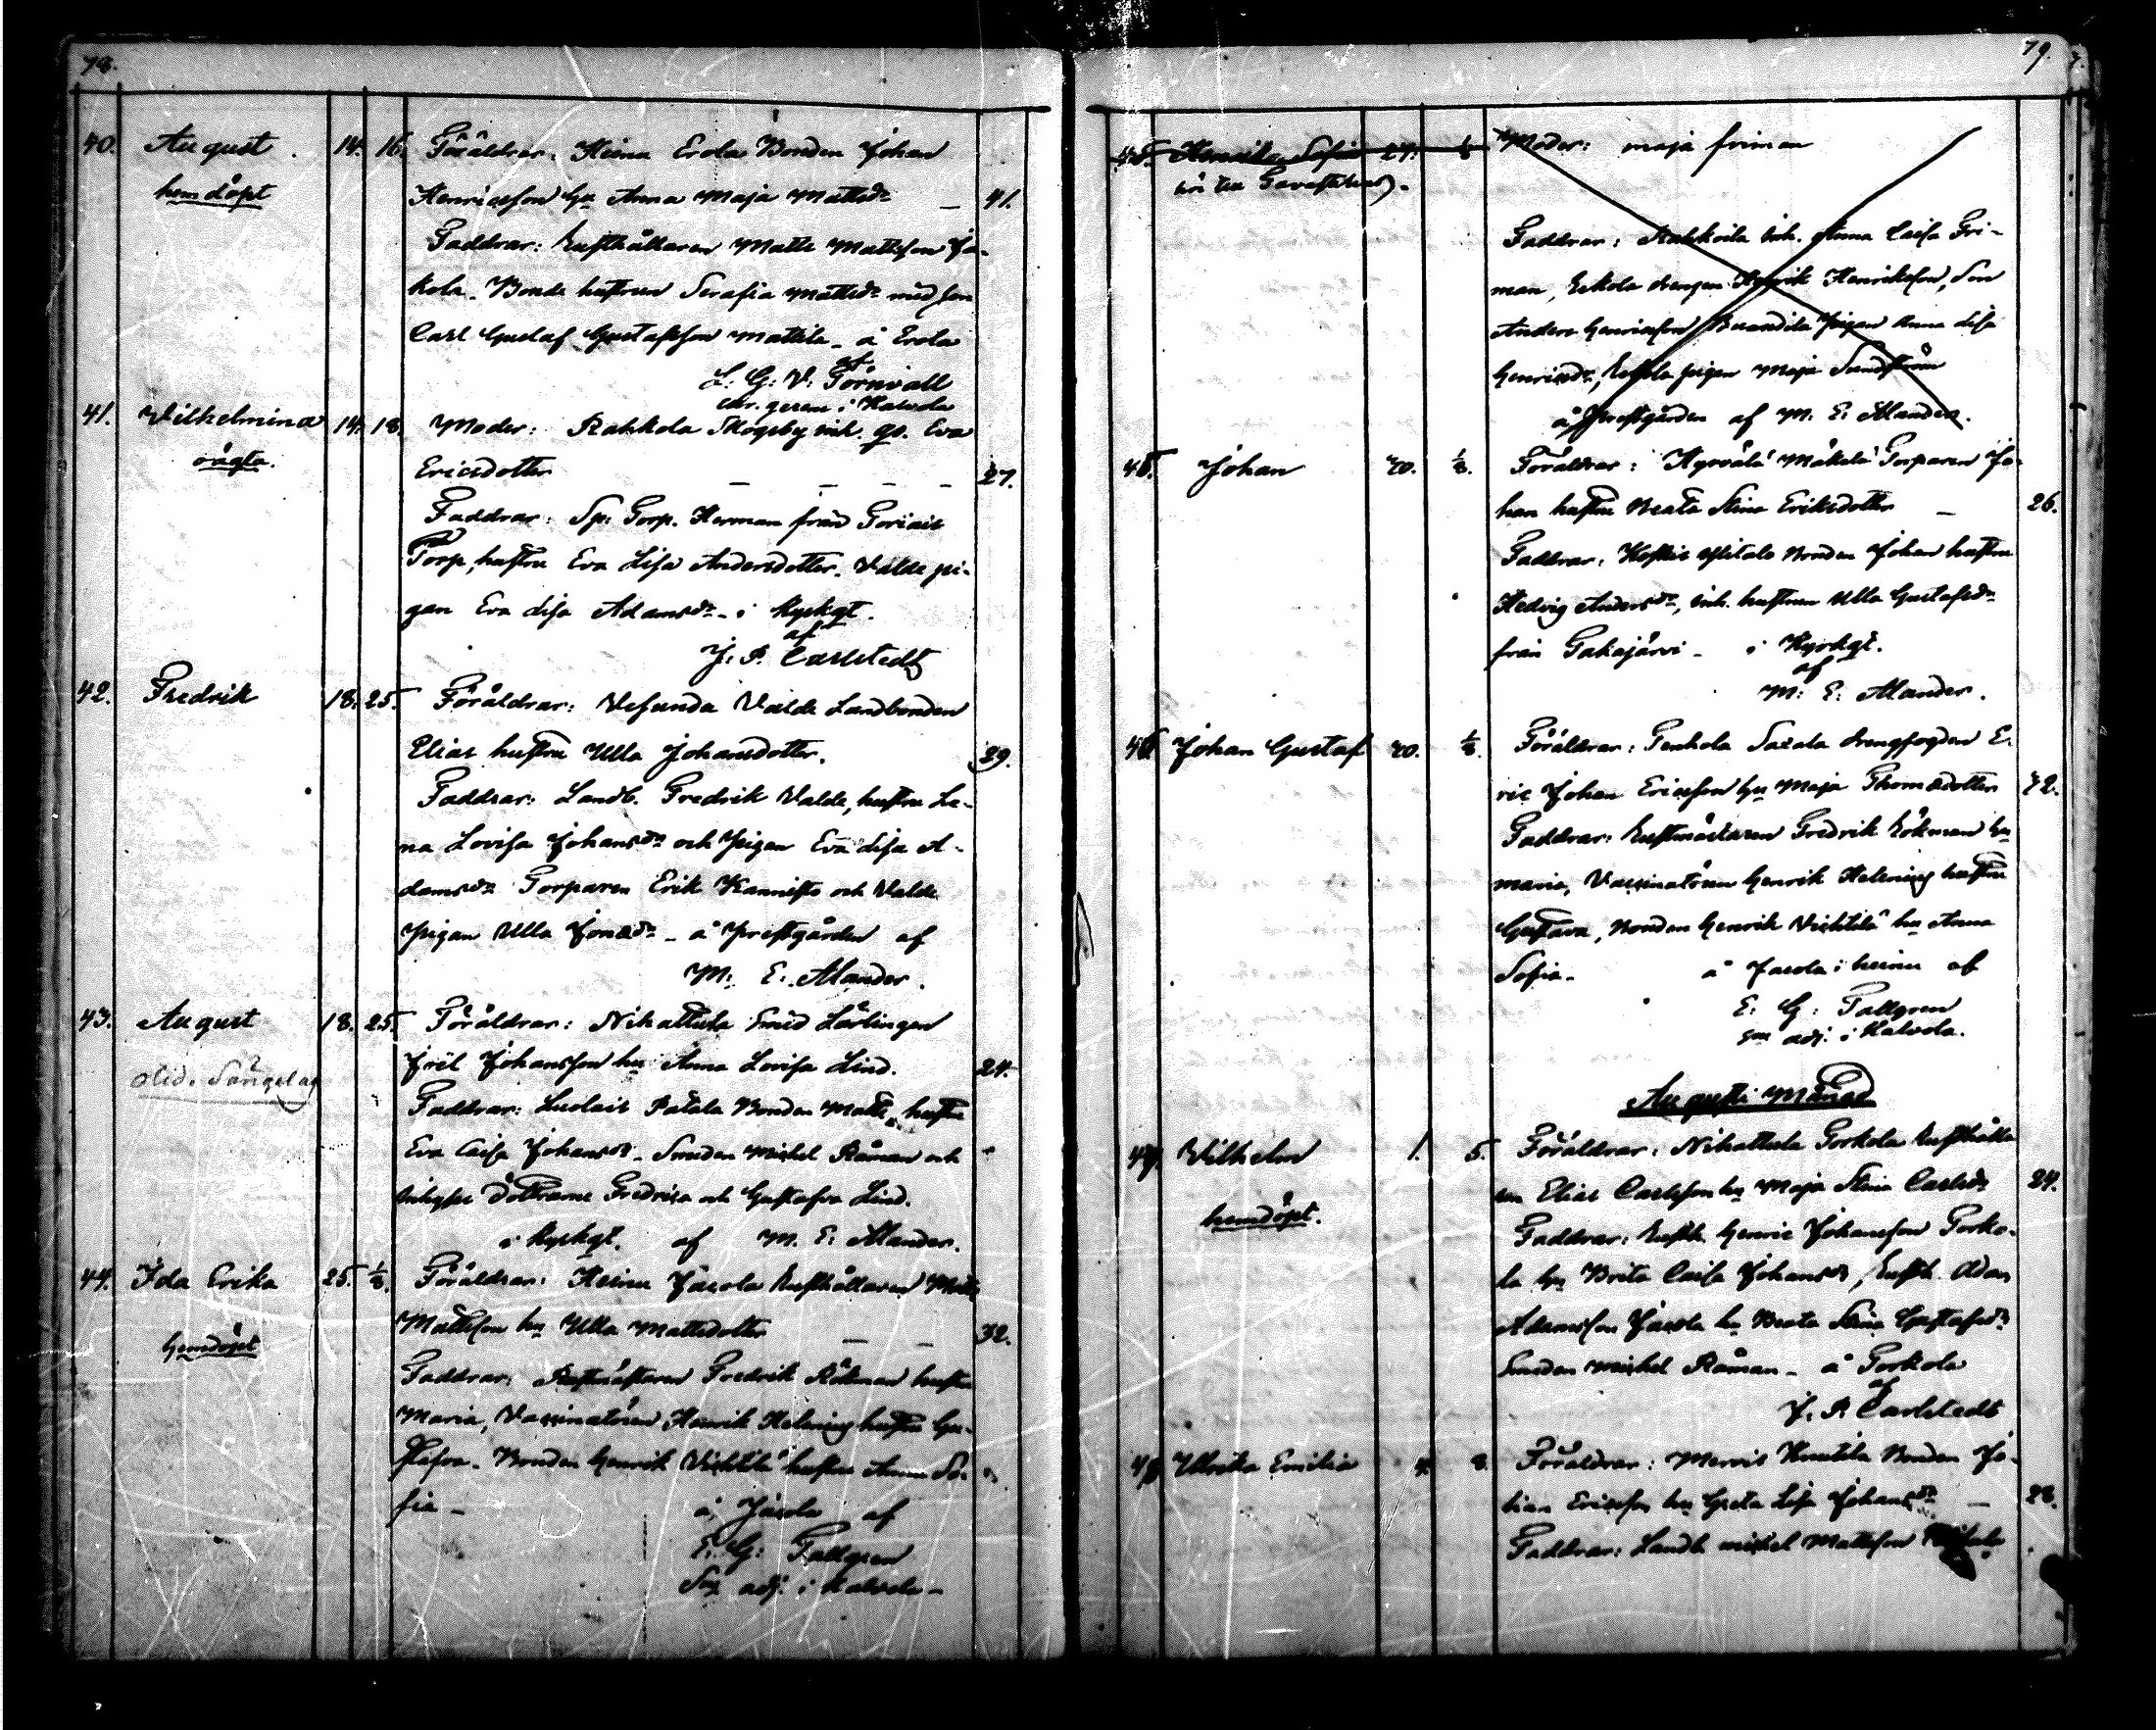 78.
40. August. 14. 16. Föräldrar: Heinu Erola Bonden Johan
hemdöpt Henricsson hu Anna Maja Mattsdr — 41.
Faddrar: Rusthållaren Matts Mattsson Ja-
kola. Bonde hustrun Serafia Mattsdr med son
Carl Gustaf Gustafsson Mattila – å Erola
af
L: G: V: Törnvall
cur. gerens i Kalvola
41. Vilhelmina 14. 18. Moder: Rahkola Skogsby inh. qp. Eva
oägta. Ericsdotter — — — — 27.
Faddrar: Sp: Torp. Herman från Toriais
Torp, hustru Eva Lisa Andersdotter. Valde pi-
gan Eva Lisa Adamsdr – i Kyrkgt.
af
J: P. Carlstedt
42. Fredrik 18. 25. Föräldrar: Vesunda Valde Landbonden
Elias hustru Ulla Johansdotter. 29.
Faddrar: Landb. Fredrik Valde, hustru Le-
na Lovisa Johansdr och Pigan Eva Lisa A-
damsdr Torparen Erik Kannisto och Valde
Pigan Ulla Jonædr – å Prestgården af
M: E: Alander.
43. August 18. 25. Föräldrar: Nihattula Smed Lärlingen
Joel Johansson hu Anna Lovisa Lind. 24.
Faddrar: Luolais Patala Bonden Matts, hustru
Eva Caisa Johansdr – Smeden Michel Råman och
Inhyses Döttrarne Fredrica och Gustafva Lind.
i Kyrkgt. af M. E: Alander.
44. Ida Erika 25. 1/8. Föräldrar: Heinu Jacola Rusthållaren Matts
Mattsson hu Ulla Mattsdotter — — 32.
hemdöpt Faddrar: Rustmästaren Fredrik Rökman hustru
Maria, Vaccinatören Henrik Helening hustru Gu-
stafva. Bonden Henrik Vichtilä hustru Anna So-
fia – å Jacola af
E: G: Pallgren
adj. i Kalvola –
79.
45. Henrika Sofia 27. 1/8 Moder: Maja Friman
hör till Tavastehus.
Faddrar: Rahkoila Inh. Anna Caisa Fri-
man, Erkola drengen Henrik Henriksson, Son
Anders Henricsson Pigan Anna Lisa
Henricsdr, Erkola pigan Maja Sundström
å Prestgården af M. E: Alander.
45. Johan 20. 1/8. Föräldrar: Hyrvälä Mäkelä Torparen Jo-
han hustru Beata Stina Eriksdotter — 26.
Faddrar: Ylitalo Bonden Johan hustru
Hedvig Andersdr, Inh. hustrun Ulla Gustafsdr
från Takajärvi – i Kyrkgt.
af
M: E: Alander.
46 Johan Gustaf 20. 1/8. Föräldrar: Penhola Sarala drengfogden E-
ric Johan Ericsson hu Maja Thomædotter 42.
Faddrar: Rustmästaren Fredrik Rökman hu
Maria, Vaccinatören Henrik Helening hustru
Gustava, Bonden Henrik Vichtilä hu Anna
Sofia – å Jacola i Heinu af
E: G: Pallgren
adj. i Kalvola.
Augusti Månad
47. Vilhelm 1. 5. Föräldrar: Nihattula Torkola Rusthålla-
ren Elias Carlsson hu Maja Stina Carlsdr 24.
hemdöpt. Faddrar: Rusth. Henric Johansson Torko-
la hu Brita Caisa Johansdr, Rusth. Adam
Adamsson Jacola hu Beata Stina Gustafsdr
Smeden Michel Råman – å Torkola
af
J. P. Carlstedt
48 Ulrika Emilia 4. 8. Föräldrar: Mervis Knutila Bonden Jo-
han Ericsson hu Greta Lisa Johansdr — 28.
Faddrar: Landb. Michel Mattsson